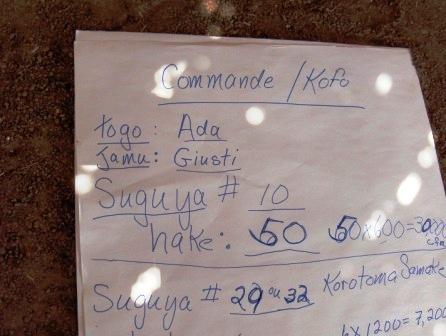 Commande / Kofo
togo : Ada
Jamu : Giusti
Suguya # 10
hake : 50 50x600=30000
cfa
Suguya # 29 ou 32 Korotoma Samake
x1200=7,20